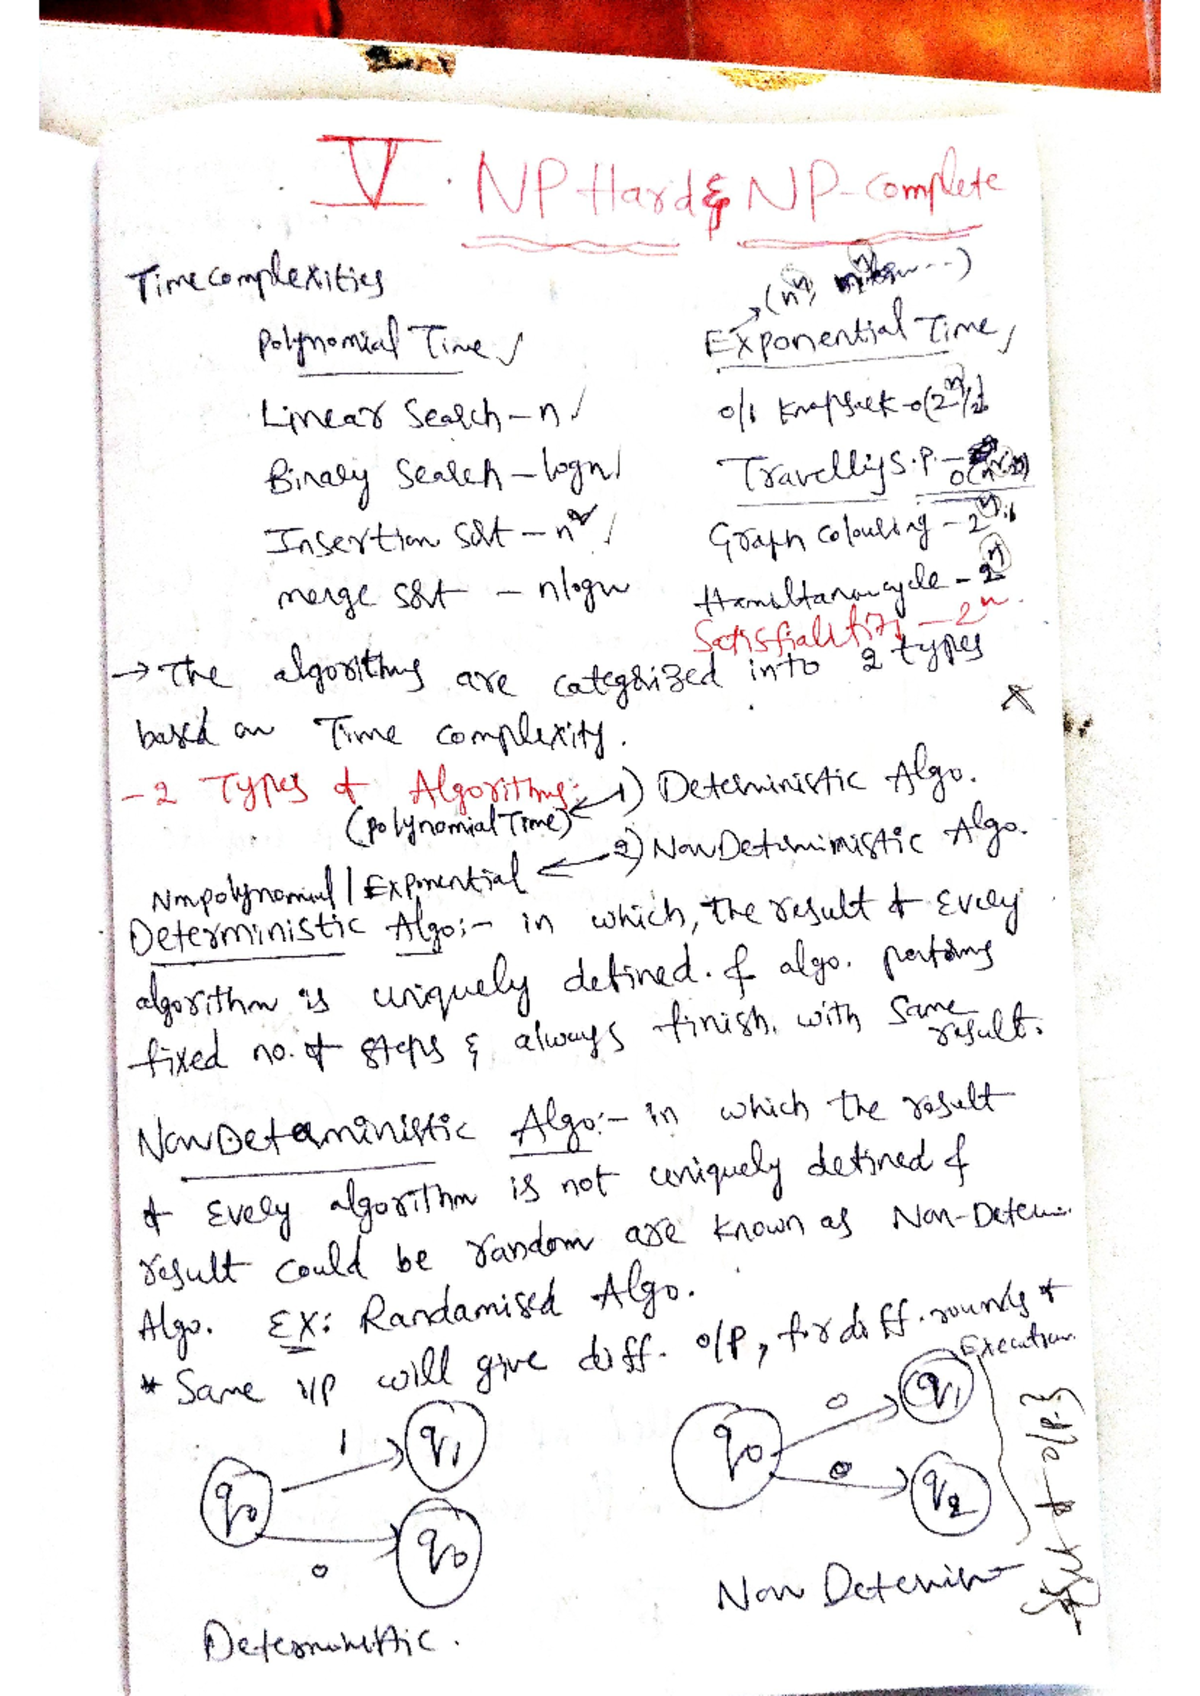 V. NP Hard & NP-complete
Time complexities
(nⁿ,
Polynomial Time ✓
Exponential Time,
Linear Search - n ✓
0/1 Knapsack - O(2ⁿ/²)
Binary Search - logn ✓
Travelling S.P. -
Insertion Sort - n² ✓
Graph Colouring - 2ⁿ
merge sort - nlogn
Hamiltanan cycle - 2ⁿ
Satisfiality - 2ⁿ
→ The algorithms are categorized into 2 types
based on Time complexity.
- 2 Types of Algorithms: 1) Deterministic Algo.
(polynomial Time)
2) Non Deterministic Algo.
Nonpolynomial | Exponential
Deterministic Algo:- in which, the result of Every
algorithm is uniquely defined. & algo. performs
fixed no. of steps & always finish. with Same result.
Non Deterministic Algo:- in which the result
of Every algorithm is not uniquely defined &
result could be random are known as Non-Determi.
Algo. Ex: Randamised Algo.
* Same I/P will give diff. O/P, for diff. rounds of
Execution.
q0 1 q1
0 q0
q0 0 q1
0 q2
Deterministic.
Non Determin